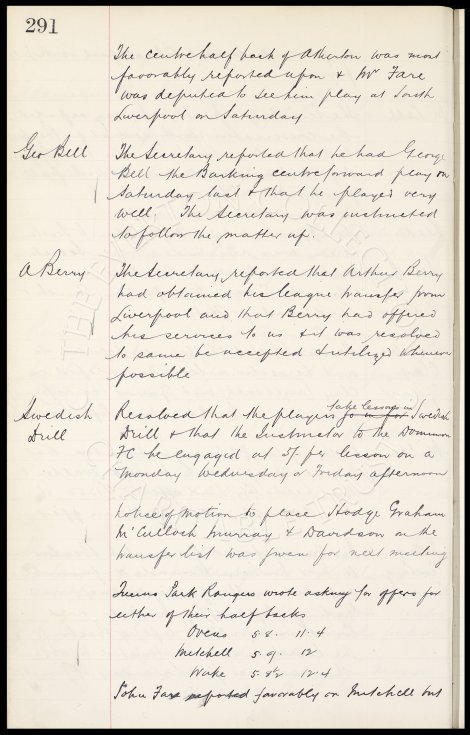 291
The centre half back of Atherton was most
favorably reported upon & Mr Fare
was deputed to see him play at South
Liverpool on Saturday
Geo Bell
The Secretary reported that he had George
Bell the Barking centre forward play on
Saturday last & that he played very
well. The Secretary was instructed
to follow the matter up.
A Berry
The Secretary reported that Arthur Berry
had obtained his league transfer from
Liverpool and that Berry had offered
his services to us & it was resolved
to same be accepted & utilized whenever
possible
Swedish
Drill
Resolved that the players take lessons in go in for Swedish
Drill & that the Instructor to the Dominion
FC be engaged at 5/ per lesson on a
Monday Wednesday or Friday afternoon
Notice of Motion to place Hodge Graham
McCulloch Murray & Davidson on the
transfer list was given for next meeting
Queens Park Rangers wrote asking for offers for
either of their half backs
Ovens 5.8. 11.4
Mitchell 5.9. 12
Wake 5.8½ 12.4
John Fare reported favorably on Mitchell but